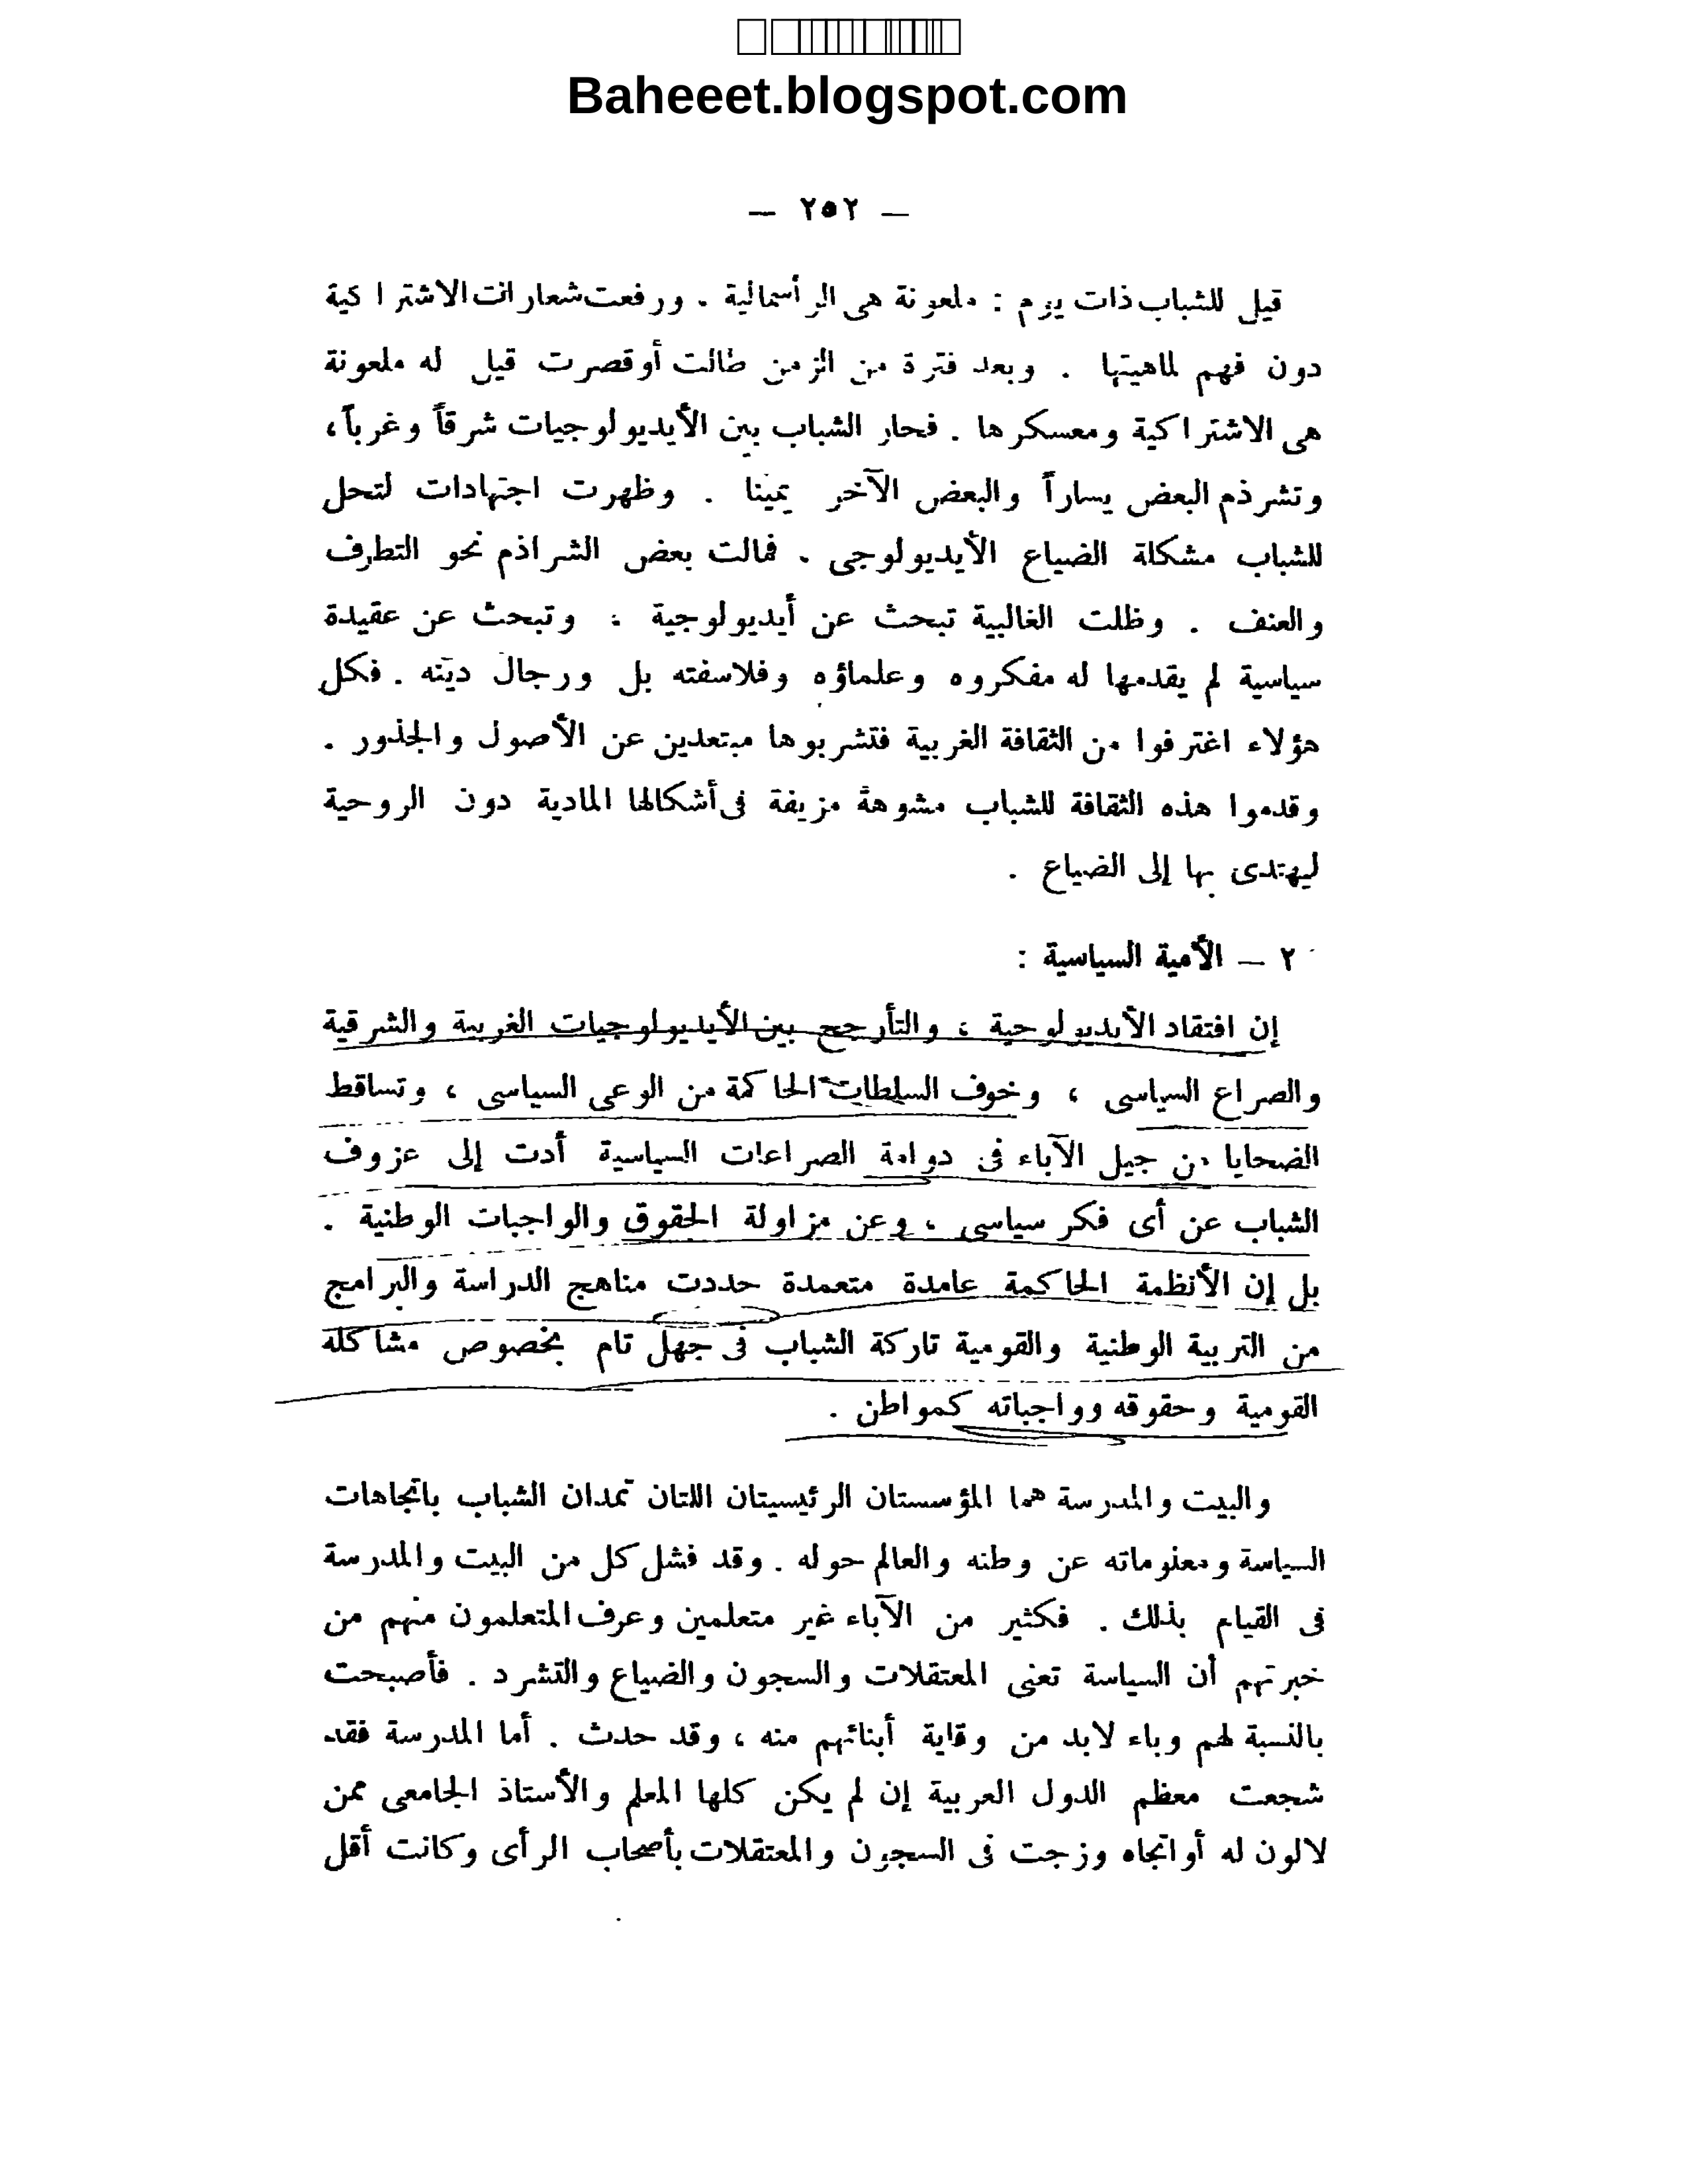 Baheeet.blogspot.com
— ٢٥٢ —
قيل للشباب ذات يوم : ملعونة هى الرأسمالية . ورفعت شعارات الاشتراكية
دون فهم لماهيتها . وبعد فترة من الزمن طالت أو قصرت قيل له ملعونة
هى الاشتراكية ومعسكرها . فحار الشباب بين الأيديولوجيات شرقاً وغرباً ،
وتشرذم البعض يساراً والبعض الآخر يميناً . وظهرت اجتهادات لتحل
للشباب مشكلة الضياع الأيديولوجى . فمالت بعض الشراذم نحو التطرف
والعنف . وظلت الغالبية تبحث عن أيديولوجية ، وتبحث عن عقيدة
سياسية لم يقدمها له مفكروه وعلماؤه وفلاسفته بل ورجال دينه . فكل
هؤلاء اغترفوا من الثقافة الغربية فتشربوها مبتعدين عن الأصول والجذور .
وقدموا هذه الثقافة للشباب مشوهة مزيفة فى أشكالها المادية دون الروحية
ليهتدى بها إلى الضياع .
٢ — الأمية السياسية :
إن افتقاد الأيديولوجية ، والتأرجح بين الأيديولوجيات الغربية والشرقية
والصراع السياسى ، وخوف السلطات الحاكمة من الوعى السياسى ، وتساقط
الضحايا من جيل الآباء فى دوامة الصراعات السياسية أدت إلى عزوف
الشباب عن أى فكر سياسى ، وعن مزاولة الحقوق والواجبات الوطنية .
بل إن الأنظمة الحاكمة عامدة متعمدة حددت مناهج الدراسة والبرامج
من التربية الوطنية والقومية تاركة الشباب فى جهل تام بخصوص مشاكله
القومية وحقوقه وواجباته كمواطن .
والبيت والمدرسة هما المؤسستان الرئيسيتان اللتان تمدان الشباب باتجاهات
السياسة ومعلوماته عن وطنه والعالم حوله . وقد فشل كل من البيت والمدرسة
فى القيام بذلك . فكثير من الآباء غير متعلمين وعرف المتعلمون منهم من
خبرتهم أن السياسة تعنى المعتقلات والسجون والضياع والتشرد . فأصبحت
بالنسبة لهم وباء لابد من وقاية أبنائهم منه ، وقد حدث . أما المدرسة فقد
شجعت معظم الدول العربية إن لم يكن كلها المعلم والأستاذ الجامعى ممن
لا لون له أو اتجاه وزجت فى السجون والمعتقلات بأصحاب الرأى وكانت أقل